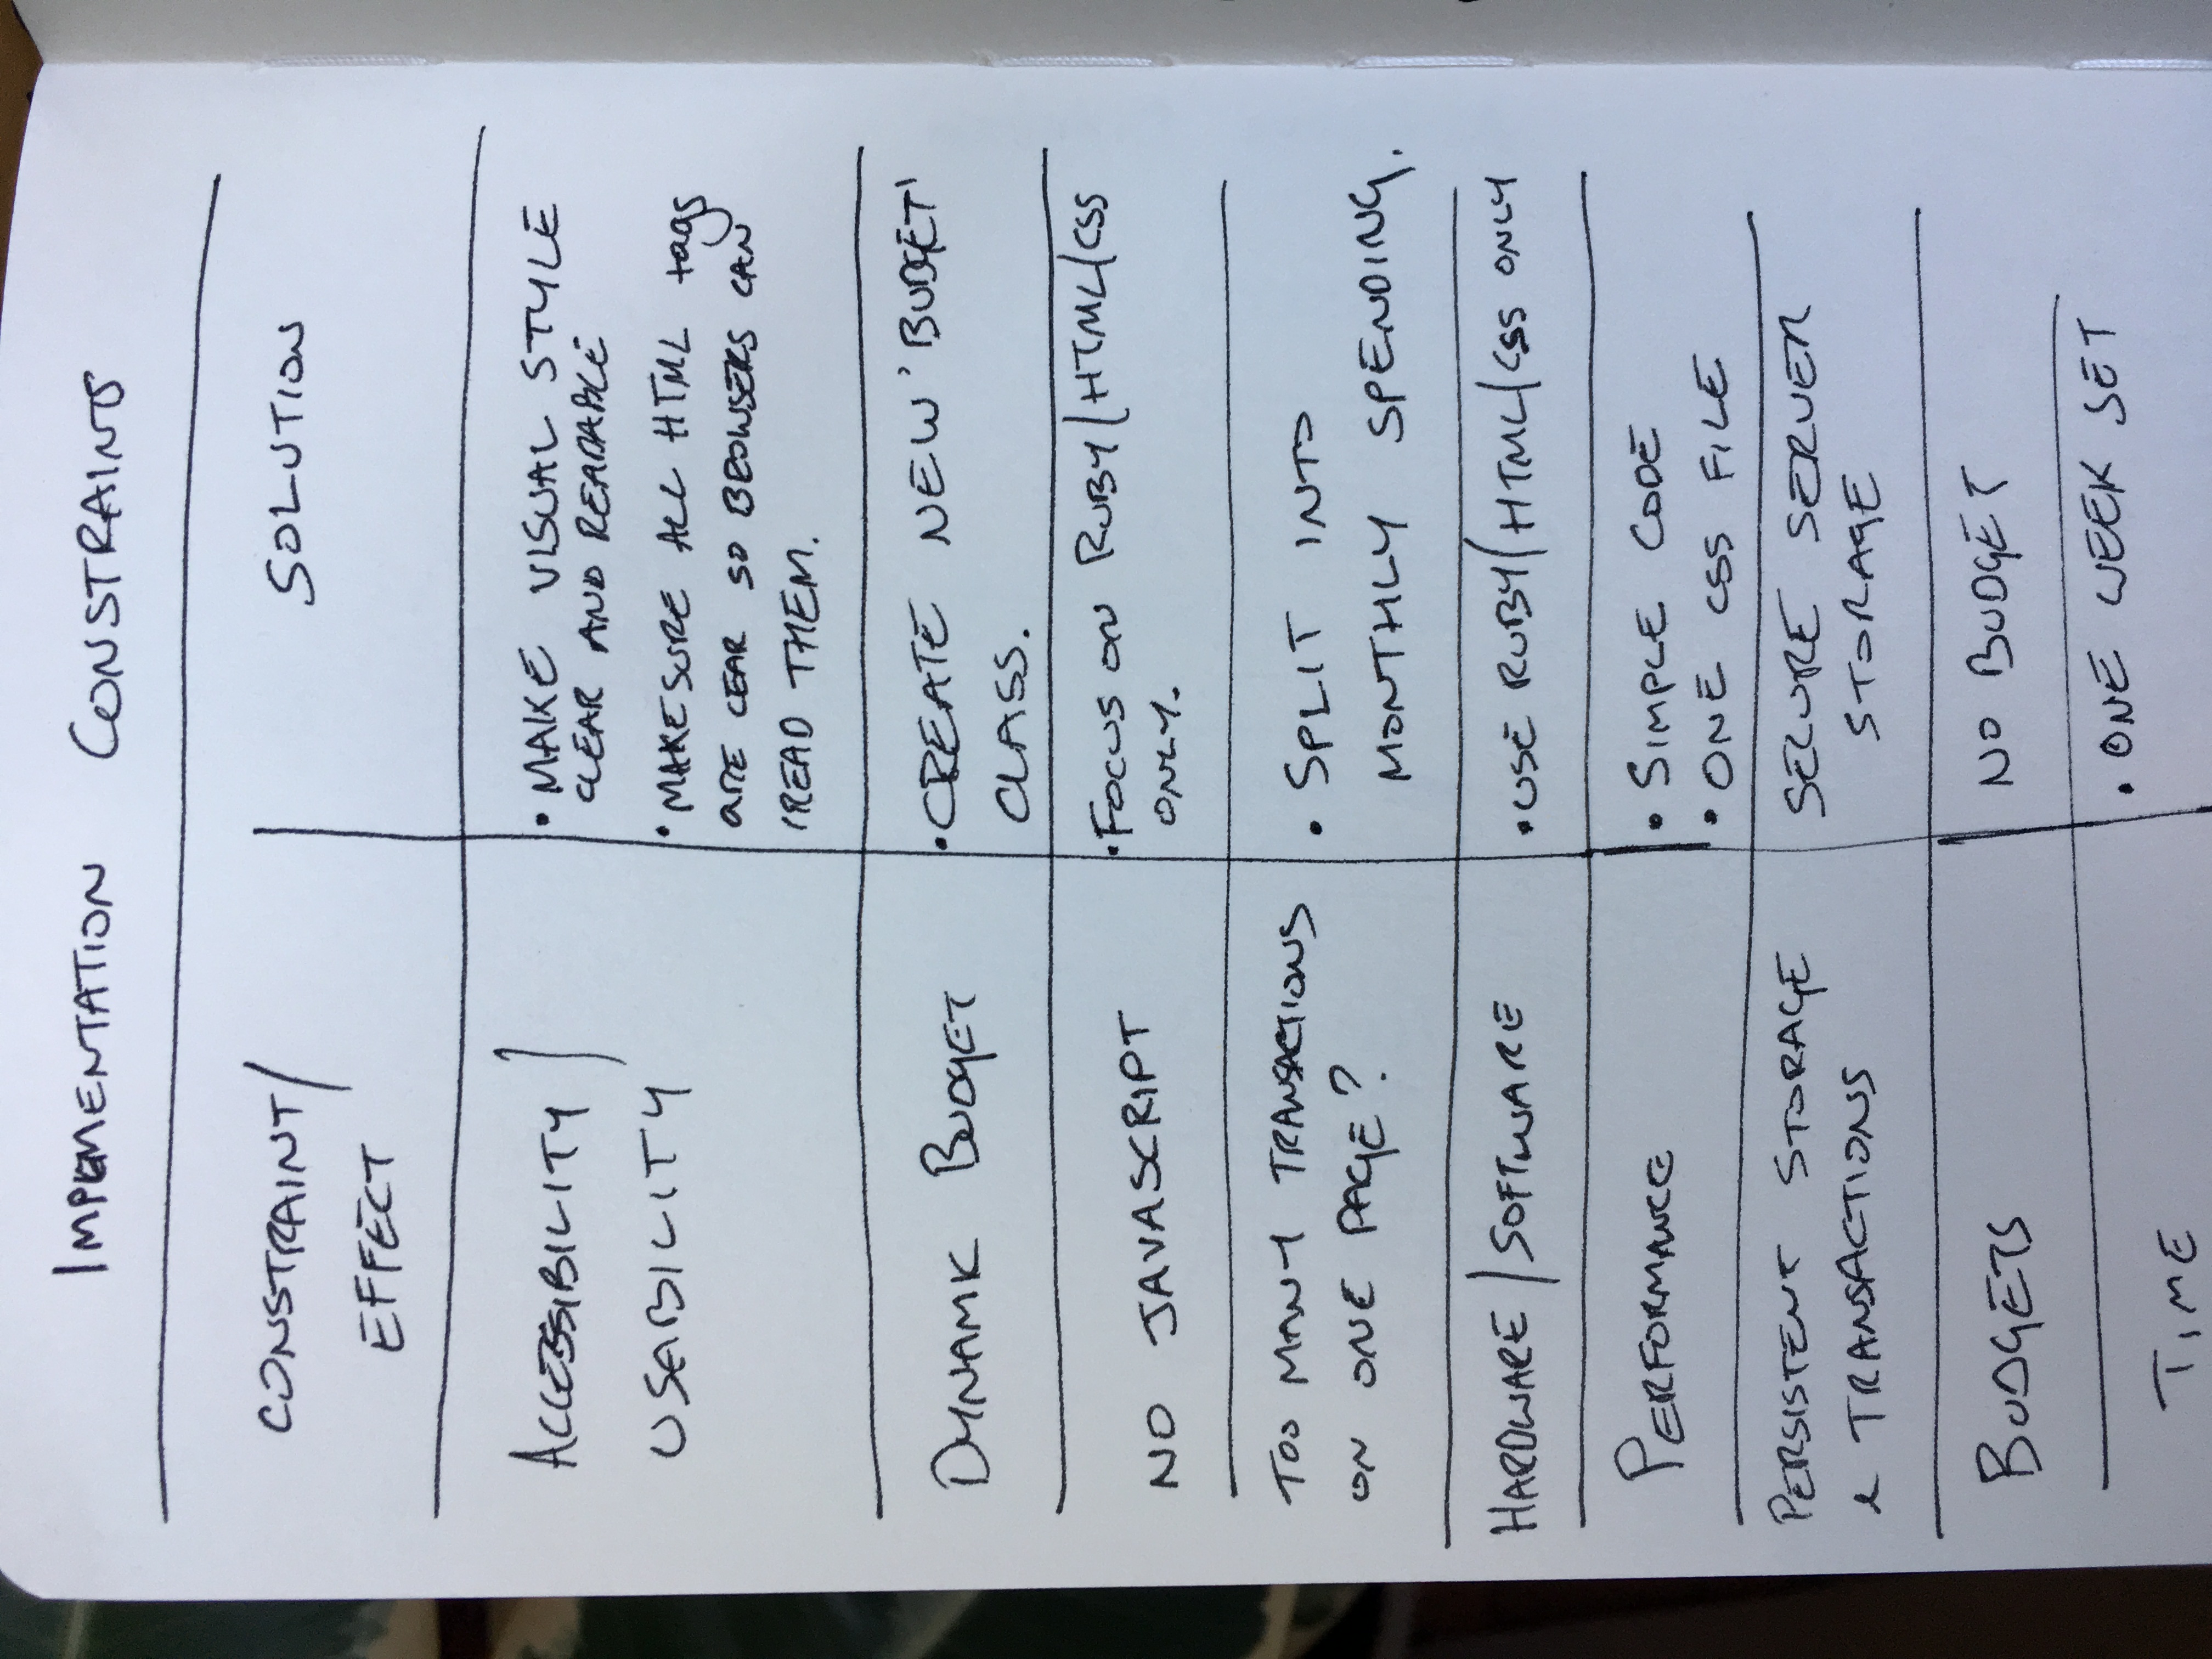 IMPLEMENTATION CONSTRAINTS
CONSTRAINT/
EFFECT
SOLUTION
ACCESSIBILITY/
USABILITY
• MAKE VISUAL STYLE
CLEAR AND READABLE
• MAKE SURE ALL HTML tags
are CEAR SO BROWSERS CAN
READ THEM.
DYNAMIC BUDGET
• CREATE NEW 'BUDGET'
CLASS.
NO JAVASCRIPT
• FOCUS ON RUBY/HTML/CSS
ONLY.
TOO MANY TRANSACTIONS
ON ONE PAGE?
• SPLIT INTO
MONTHLY SPENDING.
HARDWARE/SOFTWARE
• USE RUBY/HTML/CSS ONLY
PERFORMANCE
• SIMPLE CODE
• ONE CSS FILE
PERSISTENT STORAGE
& TRANSACTIONS
SECURE SERVER
STORAGE
BUDGETS
NO BUDGET
TIME
• ONE WEEK SET